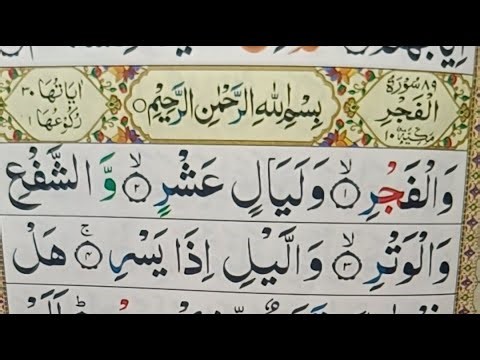 سُوْرَةُ ٨٩
الْفَجْرِ
مَكِّيَّةٌ ١٠
بِسْمِ اللهِ الرَّحْمٰنِ الرَّحِيْمِ
اٰيَاتُهَا ٣٠
رُكُوْعُهَا
وَالْفَجْرِ ۙ ١ وَلَيَالٍ عَشْرٍ ۙ ٢ وَّ الشَّفْعِ
وَالْوَتْرِ ۙ ٣ وَالَّيْلِ اِذَا يَسْرِ ۚ ٤ هَلْ